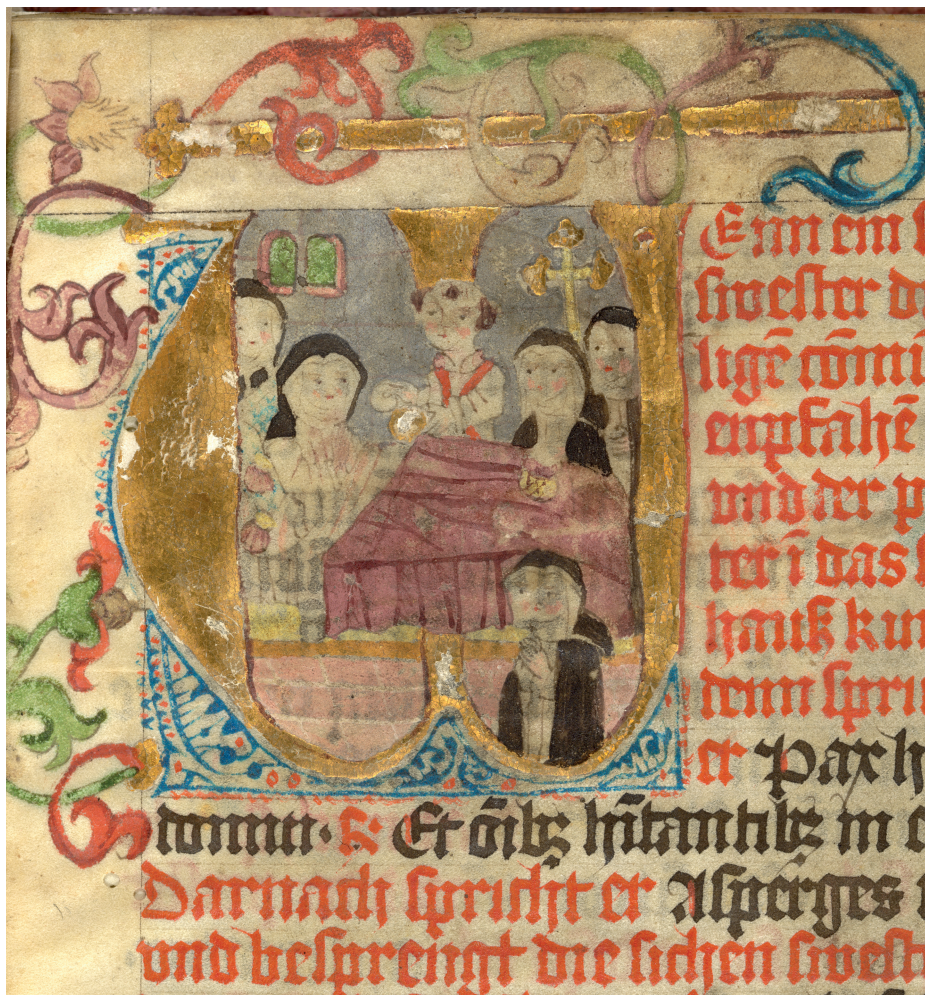 WEnn ein
swester de
ligē cōmi
enpfahē
vnd der p
ter ī das
hauß kum
denn spri
er Pax h
domui · ℟ Et õibꝫ hītantibꝫ in
Darnach spricht er Asperges
vnd besprengt die sichen swest